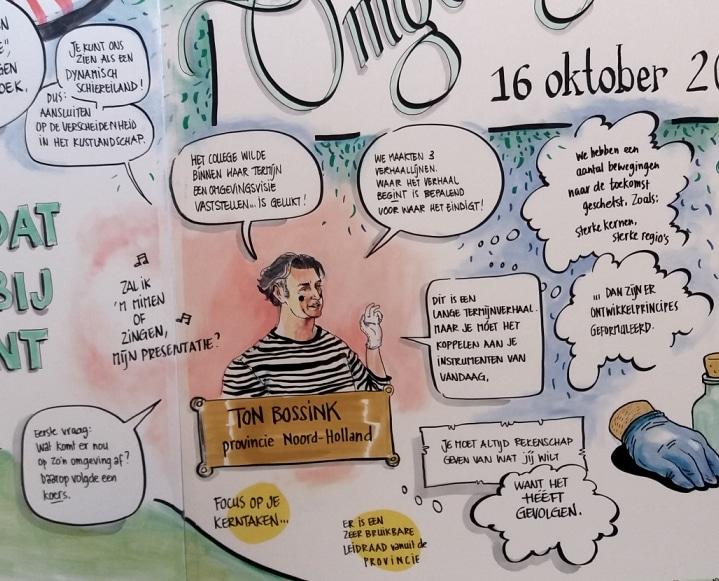 Omg
16 oktober 20
EN
E",
GEN
OEK.
JE KUNT ONS
ZIEN ALS EEN
DYNAMISCH
SCHIEREILAND!
DUS:
AANSLUITEN
OP DE VERSCHEIDENHEID
IN HET KUSTLANDSCHAP.
DAT
BIJ
NT
ZAL IK
'M MIMEN
OF
ZINGEN,
MIJN PRESENTATIE?
Eerste vraag:
Wat komt er nou
op zo'n omgeving af?
Daarop volgde een
koers.
HET COLLEGE WILDE
BINNEN HAAR TERMIJN
EEN OMGEVINGSVISIE
VASTSTELLEN... IS GELUKT!
WE MAAKTEN 3
VERHAALLIJNEN.
WAAR HET VERHAAL
BEGINT IS BEPALEND
VOOR WAAR HET EINDIGT!
We hebben een
aantal bewegingen
naar de toekomst
geschetst. Zoals:
sterke kernen,
sterke regio's
DIT IS EEN
LANGE TERMIJNVERHAAL.
MAAR JE MOET HET
KOPPELEN AAN JE
INSTRUMENTEN VAN
VANDAAG.
... DAN ZIJN ER
ONTWIKKELPRINCIPES
GEFORMULEERD.
TON BOSSINK
provincie Noord-Holland
JE MOET ALTIJD REKENSCHAP
GEVEN VAN WAT JIJ WILT
WANT HET
HÉÉFT
GEVOLGEN.
FOCUS OP JE
KERNTAKEN...
ER IS EEN
ZEER BRUIKBARE
LEIDRAAD vanuit de
PROVINCIE